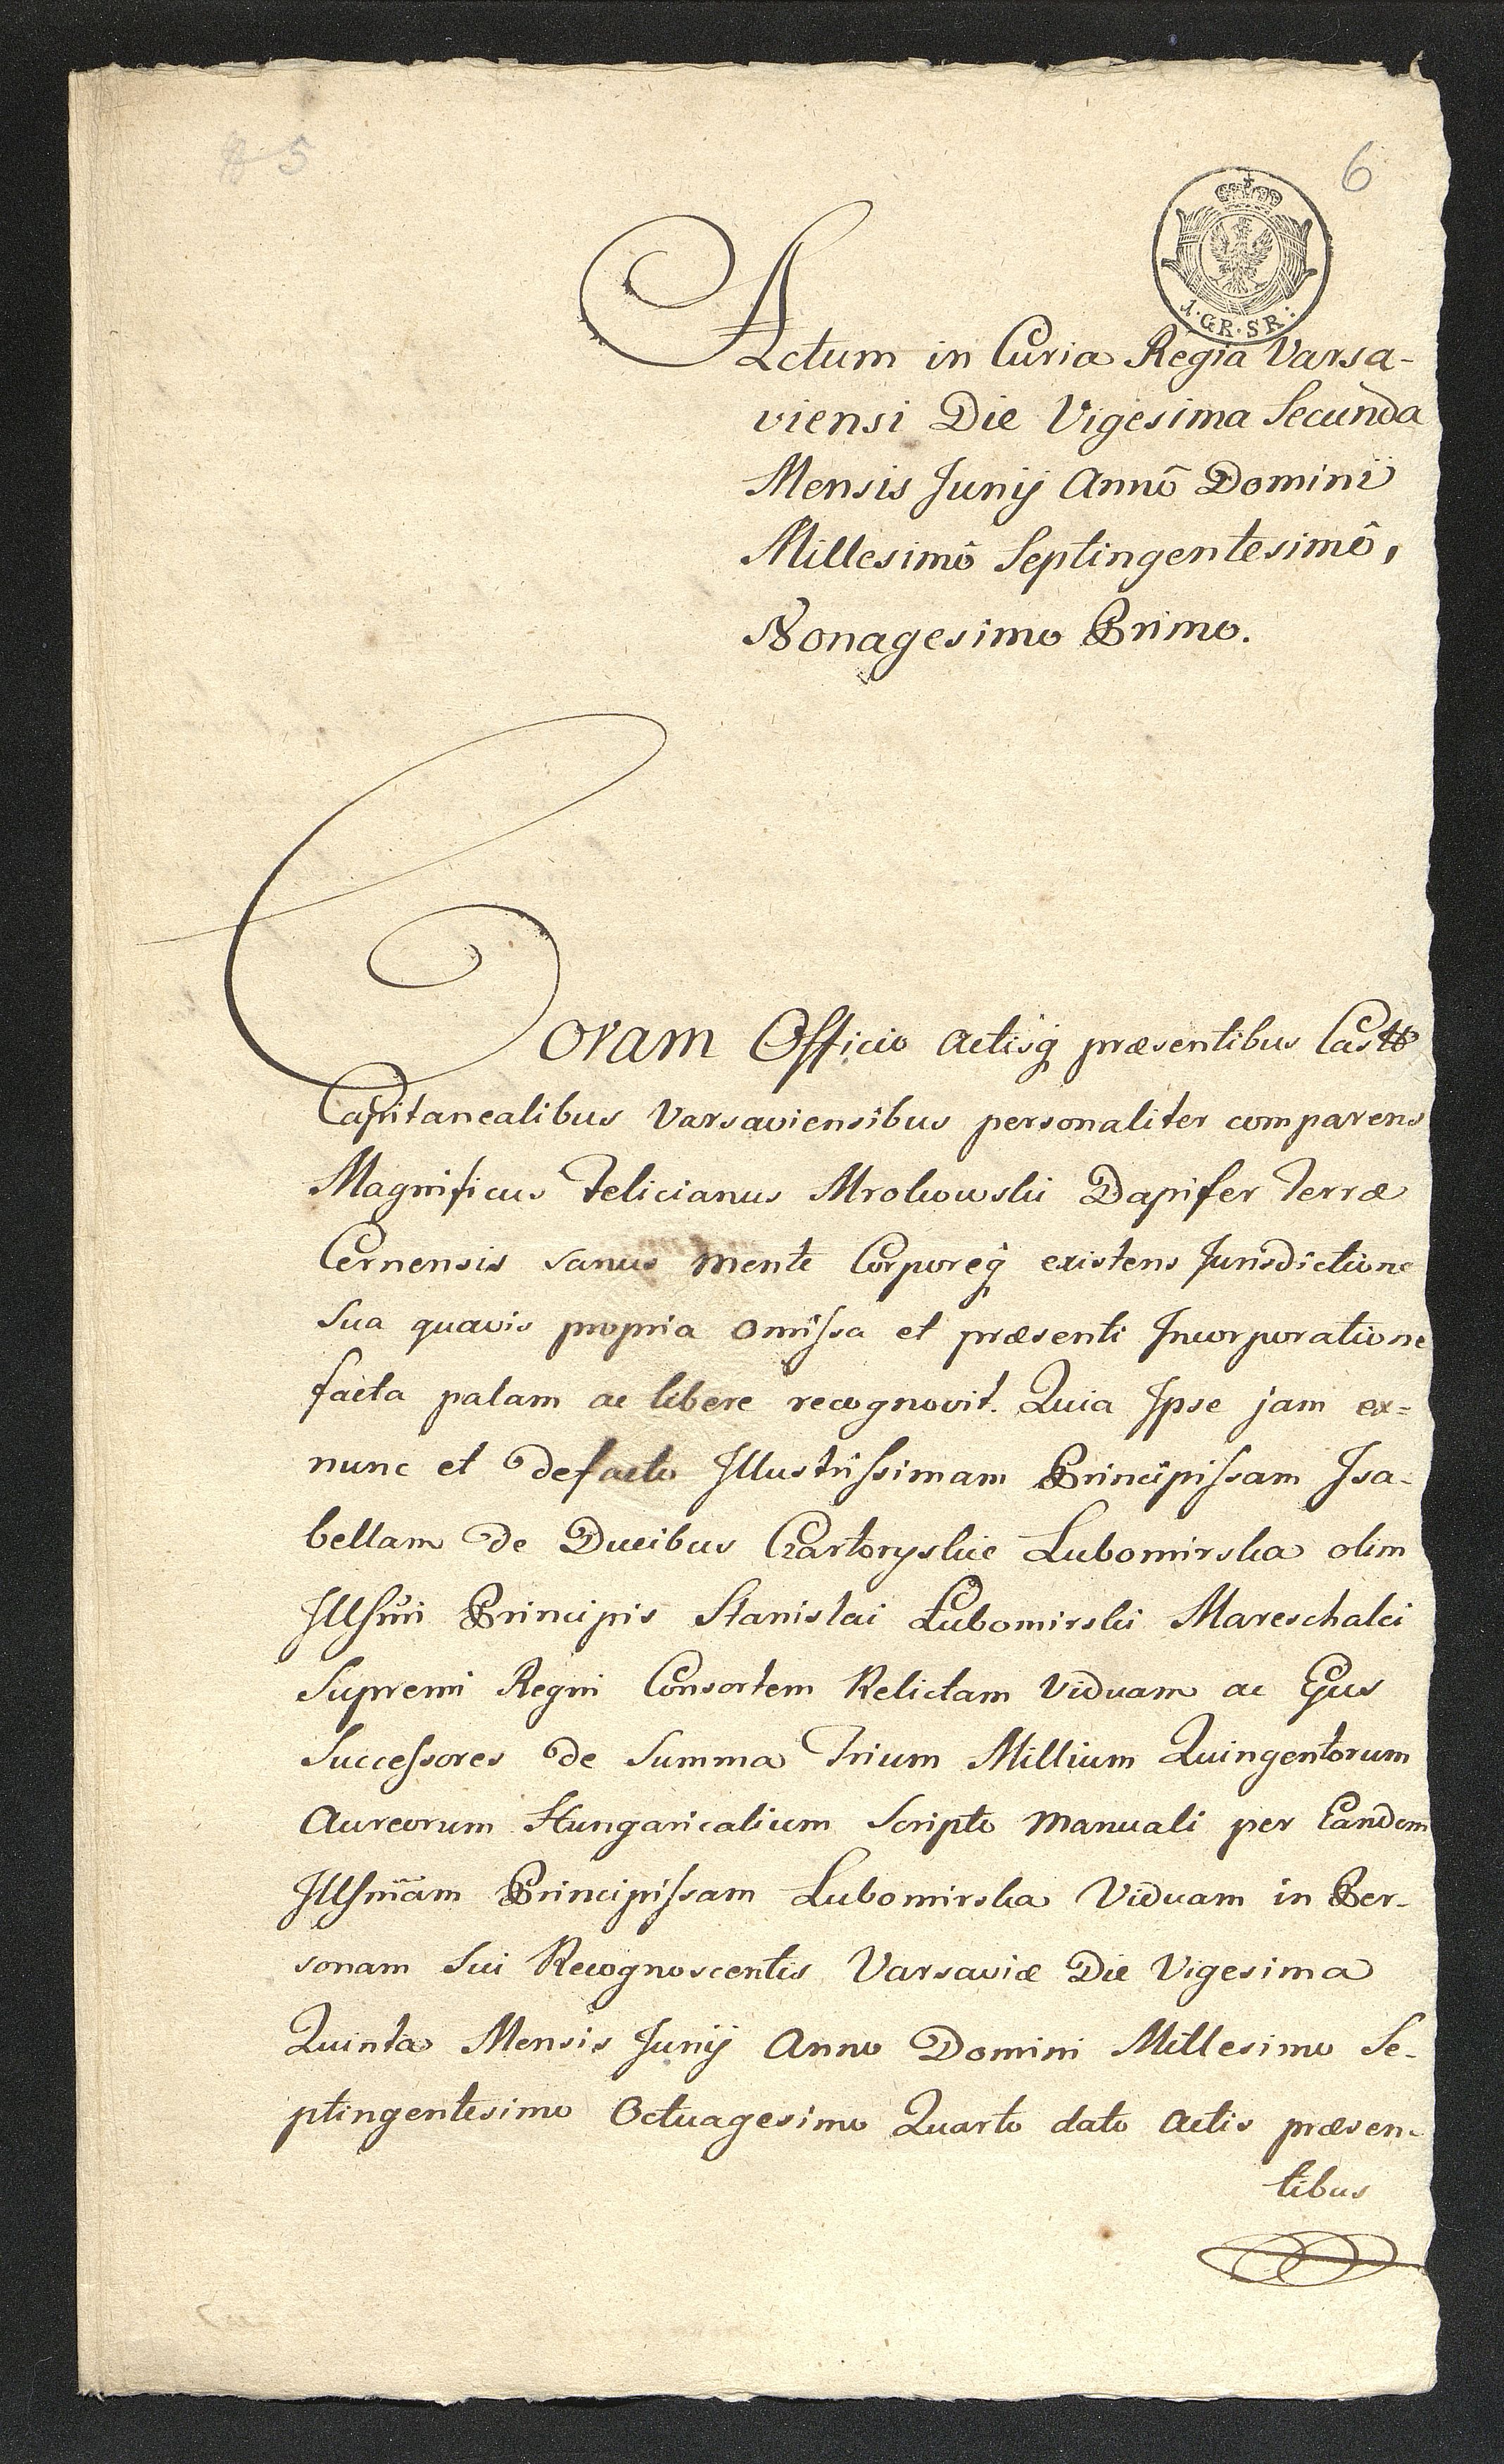 5
6
1·GR·SR:
Actum in Curia Regia Varsa-
viensi Die Vigesima Secunda
Mensis Junij Annô Domini
Millesimô Septingentesimô,
Nonagesimo Primo.
Coram Officio Actisq̨ præsentibus
Capitanealibus Varsaviensibus personaliter comparens
Magnificus Felicianus Mrokowski Dapifer Terræ
Cernensis sanus mente Corporeq̨ existens Jurisdictione
Sua quavis propria omiſsa et præsenti Incorporatione
facta palam ac libere recognovit. Quia Ipse jam ex=
nunc et defacto Illustriſsimam Principiſsam Isa-
bellam de Ducibus Czartoryskie Lubomirska olim
Illſm̃i Principis Stanislai Lubomirski Mareschalci
Supremi Regni Consortem Relictam Viduam ac Ejus
Succeſsores de Summa Trium Millium Quingentorum
Aureorum Hungaricalium Scripto Manuali per Eandem
Illſm̃am Principiſsam Lubomirska Viduam in Per-
sonam Sui Recognoscentis Varsaviæ Die Vigesima
Quinta Mensis Junij Anno Domini Millesimo Se-
ptingentesimo Octuagesimo Quarto dato Actis præsen-
tibus